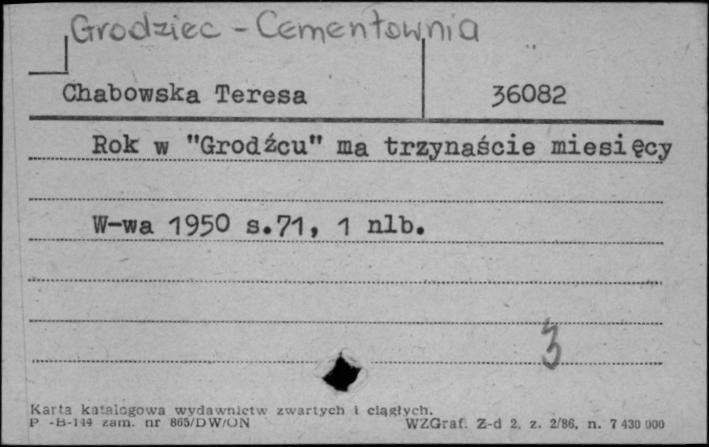 Grodziec - Cementownia
Chabowska Teresa 36082
Rok w "Grodźcu" ma trzynaście miesięcy
W-wa 1950 s.71, 1 nlb.
3
Karta katalogowa wydawnictw zwartych i ciągłych.
P -B-144 zam. nr 865/DW/ON WZGraf. Z-d 2, z. 2/86, n. 7 430 000